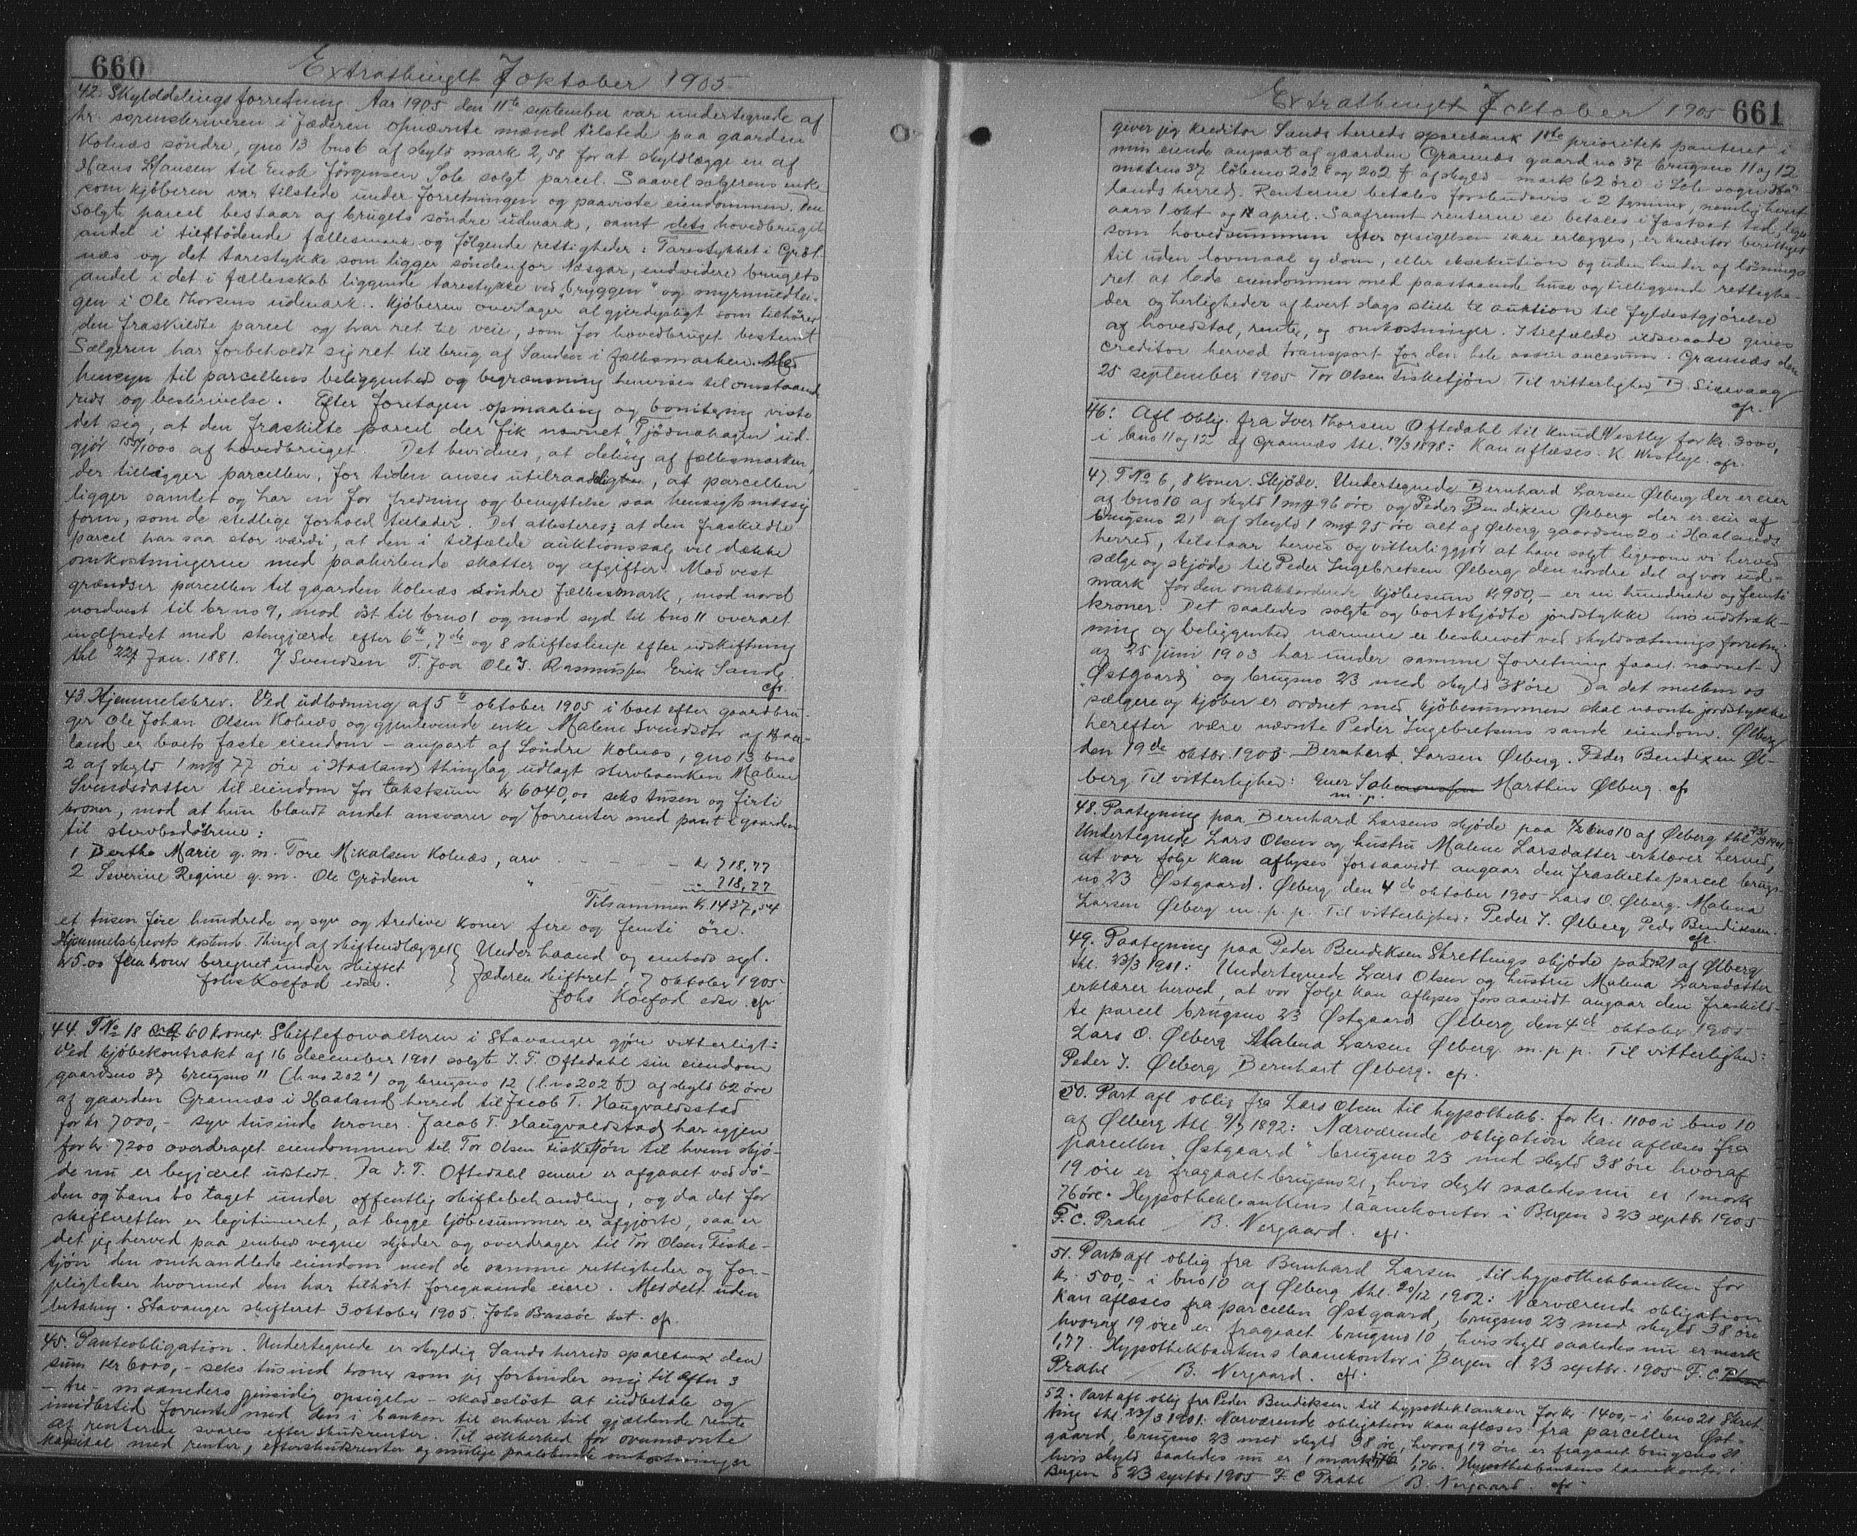 660
Extrathinget 7 oktober 1905
42. Skylddelingsforretning. Aar 1905 den 11te september var undertegnede af
hr. sorenskriveren i Jæderen opnævnte mænd tilstede paa gaarden
Kolnæs søndre, gno 13 bno 6 af skyld mark 2,58 for at skyldlægge en af
Hans Hansen til Enok Jørgensen Sole solgt parcel. Saavel sælgerens enke
som kjøberen var tilstede under forretningen og paaviste eiendommen. Den
solgte parcel bestaar af brugets søndre udmark, samt dets hovedbrugets
andel i tilstødende fællesmark og følgende rettigheder: Tarestykket i
næs og det tarestykke som ligger søndenfor Næsgar, endvidere brugets
andel i det i fælleskab liggende tarestykke ved "bryggen" og myrmudlei-
gen i Ole Thorsens udmark. Kjøberen overtager al gjerdepligt som tilhører
den fraskildte parcel og har ret til veie, som for hovedbruget bestemt
Sælgeren har forbeholdt sig ret til brug af Sanden i fællesmarken. Med
hensyn til parcellens beliggenhed og begrænsning henvises til omstaaende
rids og beskrivelse. Efter foretagen opmaaling og bonitering viste
det sig, at den fraskilte parcel der fik navnet "Tjødnahagen" ud-
gjør 155/1000 af hovedbruget. Det bevidnes, at deling af fællesmarken,
der tillægger parcellen, for tiden anses utilraadelig, at parcellen
ligger samlet og har en for fredning og benyttelse saa hensigtsmæssig
form, som de stedlige forhold tillader. Det attesteres, at den fraskildte
parcel har saa stor værdi, at den i tilfælde auktionssalg vil dække
omkostningerne med paahvilende skatter og afgifter. Mod vest
grændser parcellen til gaarden Kolnæs søndre fællesmark, mod nord
nordvest til br no 9, mod øst til bno 1 og mod syd til bno 11 overalt
indfredet med stengjærde efter 6te, 7de og 8 skifteslinje efter udskiftning
thl 22/ Jan. 1881. J Svendsen T. Joa Ole J. Rasmussen Erik Sande
cfr.
43. Hjemmelsbrev. Ved udlodning af 5te oktober 1905 i boet efter gaardbru-
ger Ole Johan Olsen Kolnæs og gjenlevende enke Malene Svendsdtr af Haa-
land er boets faste eiendom - anpart af Søndre Kolnæs, gno 13 bno
2 af skyld 1 mrk 77 øre i Haaland thinglag udlagt stervboenken Malene
Svendsdatter til eiendom for takstsum kr 6040,00 seks tusen og firti
kroner, mod at hun blandt andet ansvarer og forrenter med pant i gaarden
til stervbodøtrene:
1 Berthe Marie g. m. Tore Mikalsen Kolnæs, arv - - - - kr 718,77
2 Severine Regine g. m. Ole Grødem " - - - - " 718,77
Tilsammen kr. 1437,54
et tusen fire hundrede og syv og tredive kroner fire og femti øre.
Hjemmelsbrevets kostende Thingl af skifteudlægget Under haand og embeds segl.
kr 5.00 fem kroner beregnet under skiftet Jæderen skifteret, 7 oktober 1905
Johs Koefod edsv. Johs Koefod edsv. cfr
44. T No 18 60 kroner Skifteforvalteren i Stavanger gjør vitterligt:
Ved kjøbekontrakt af 16 december 1901 solgte J. T. Oftedahl sin eiendom
gaardsno 37 brugsno 11 (l. no 202 e) og brugsno 12 (l. no 202 f) af skyld 62 øre
af gaarden Grannæs i Haaland herred til Jacob T. Haugvaldsstad
for kr 7000,- syv tusinde kroner. Jacob T. Haugvaldstad har igjen
for kr. 7200 overdraget eiendommen til Tor Olsen Fisketjøn til hvem skjø-
de nu er begjæret udstedt. Da J. T. Oftedahl senere er afgaaet ved dø-
den og hans bo taget under offentlig skiftebehandling, og da det for
skifteretten er legitimeret, at begge kjøbesummer er afgjorte, saa er
det jeg herved paa embeds vegne skjøder og overdrager til Tor Olsen Fiske-
tjøn den omhandlede eiendom med de samme rettigheder og for-
pligtelser hvormed den har tilhørt foregaaende eiere. Meddelt uden
betaling. Stavanger skifteret 3 oktober 1905. Johs Bassøe kst. cfr.
45. Panteobligation. Undertegnede er skyldig Sands herreds sparebank den
sum kr 6000,- seks tusind kroner som jeg forbinder mig til efter 3
- tre - maaneders gjensidig opsigelse - skadesløst at indbetale og
imidlertid forrente med den i banken til enhver tid gjældende rente
af renterne svares efterskudsrenter. Til sikkerhed for ovennævnte
kapital med renter, efterskudsrenter og mulige paaløbende omkostninger
Extrathinget 7 oktober 1905 661
giver jeg kreditor Sands herreds sparebank 1ste prioritets panteret i
min eiende anpart af gaarden Grannæs gaard no 37 brugsno 11 og 12
matrno 37 løbeno 202 e og 202 f af skyld - mark 62 øre i Sole sogn Haa-
lands herred. Renterne betales forskudsvis i 2 terminer, nemlig hvert
aars 1 okt og 1 april. Saafremt renterne ei betales i fastsat tid, lige-
som hovedsummen efter opsigelsen ikke erlægges, er kreditor berettiget
til uden lovmaal og dom, eller eksekution og uden hinder af løsnings
ret at lade eiendommen med paastaaende huse og tilliggende rettighe-
der og herligheder af hvert slags stille til auktion til fyldestgjørelse
af hovedstol, renter, og omkostninger. I tilfælde ildsvaade gives
creditor herved transport for den hele assurancesum. Grannæs den
25 september 1905 Tor Olsen Fisketjøn Til vitterlighed B Sigevaag
cfr.
46: Afl oblig. fra Iver Thorsen Oftedahl til Knud Westby for kr. 3000,
i bno 11 og 12 af Grannæs thl. 19/3 1898: Kan aflæses. K. Westbye. cfr.
47. T No 6, 8 kroner. Skjøde. Undertegnede Bernhard Larsen Ølberg der er eier
af bno 10 af skyld 1 mrk 96 øre og Peder Bendixen Ølberg der er eier af
brugsno 21 af skyld 1 mrk 95 øre alt af Ølberg gaardsno 20 i Haalands
herred, tilstaar herved og vitterliggjør at have solgt ligesom vi herved
sælge og skjøde til Peder Ingebretsen Ølberg den nordre del af vor ud-
mark for den omakkorderede kjøbesum kr 950,- er ni hundrede og femti
kroner. Det saaledes solgte og bortskjødte jordstykke hvis udstræk-
ning og beliggenhed nærmere er beskrevet ved skyldsætningsforretning
af 25 juni 1903 har under samme forretning faaet navnet
"Østgaard" og brugsno 23 med skyld 38 øre Da det mellem os
sælgere og kjøber er ordnet med kjøbesummen skal nævnte jordstykke
herefter være nævnte Peder Ingebretsens sande eiendom. Ølberg
den 19de oktbr. 1903 - Bernhart Larsen Ølberg. Peder Bendixen Øl-
berg Til vitterlighed: Marthin Ølberg. cfr
m. p.
48. Paategning paa Bernhard Larsens skjøde paa bno 10 af Ølberg thl 23/3 1901
Undertegnede Lars Olsen og hustru Malene Larsdatter erklærer herved,
at vor folge kan aflyses forsaavidt angaar den fraskilte parcel brugs-
no 23 Østgaard. Ølberg den 4de oktober 1905 Lars O. Ølberg. Malena
Larsen Ølberg m. p. p. Til vitterlighed: Peder I. Ølberg Peder Bendiksen.
cfr.
49. Paategning paa Peder Bendiksen Skrettings skjøde paa bno 21 af Ølberg
thl. 23/3 1901: Undertegnede Lars Olsen og hustru Malena Larsdatter
erklærer herved, at vor folge kan aflyses forsaavidt angaar den fraskild-
te parcel brugsno 23 Østgaard Ølberg den 4de oktober 1905
Lars O. Ølberg Malena Larsen Ølberg m. p. p. Til vitterlighed:
Peder I. Ølberg Bernhart Ølberg. cfr.
50. Part afl oblig fra Lars Olsen til hypothekb. for kr. 1100 i bno 10
af Ølberg thl 9/7 1892: Nærværende obligation kan aflæses fra
parcellen "Østgaard" brugsno 23 med skyld 38 øre hvoraf
19 øre er fragaaet brugsno 21, hvis skyld saaledes nu er 1 mark
76 øre. Hypothekbankens laanekontor i Bergen d 23 septbr 1905
F. C. Prahl / B. Nergaard. cfr.
51. Part afl oblig fra Bernhard Larsen til hypothekbanken for
kr. 500,- i bno 10 af Ølberg thl. 20/12 1902: Nærværende obligation
kan aflæses fra parcellen Østgaard, brugsno 23 med skyld 38 øre
hvoraf 19 øre er fragaaet brugsno 10, hvis skyld saaledes nu er mark
1,77. Hypothekbankens laanekontor i Bergen d 23 septbr. 1905 F. C.
Prahl B. Nergaard. cfr.
52. Part afl oblig fra Peder Bendiksen til hypothekbanken for kr. 1400,- i bno 21 Skret-
ting thl 23/3 1901: Nærværende obligation kan aflæses fra parcellen Øst-
gaard, brugsno 23 med skyld 38 øre, hvoraf 19 øre er fragaaet brugsno 21
hvis skyld saaledes nu er 1 mark 1,76. Hypothekbankens laanekontor i
Bergen d 23 septbr 1905 F. C Prahl / B. Nergaard. cfr